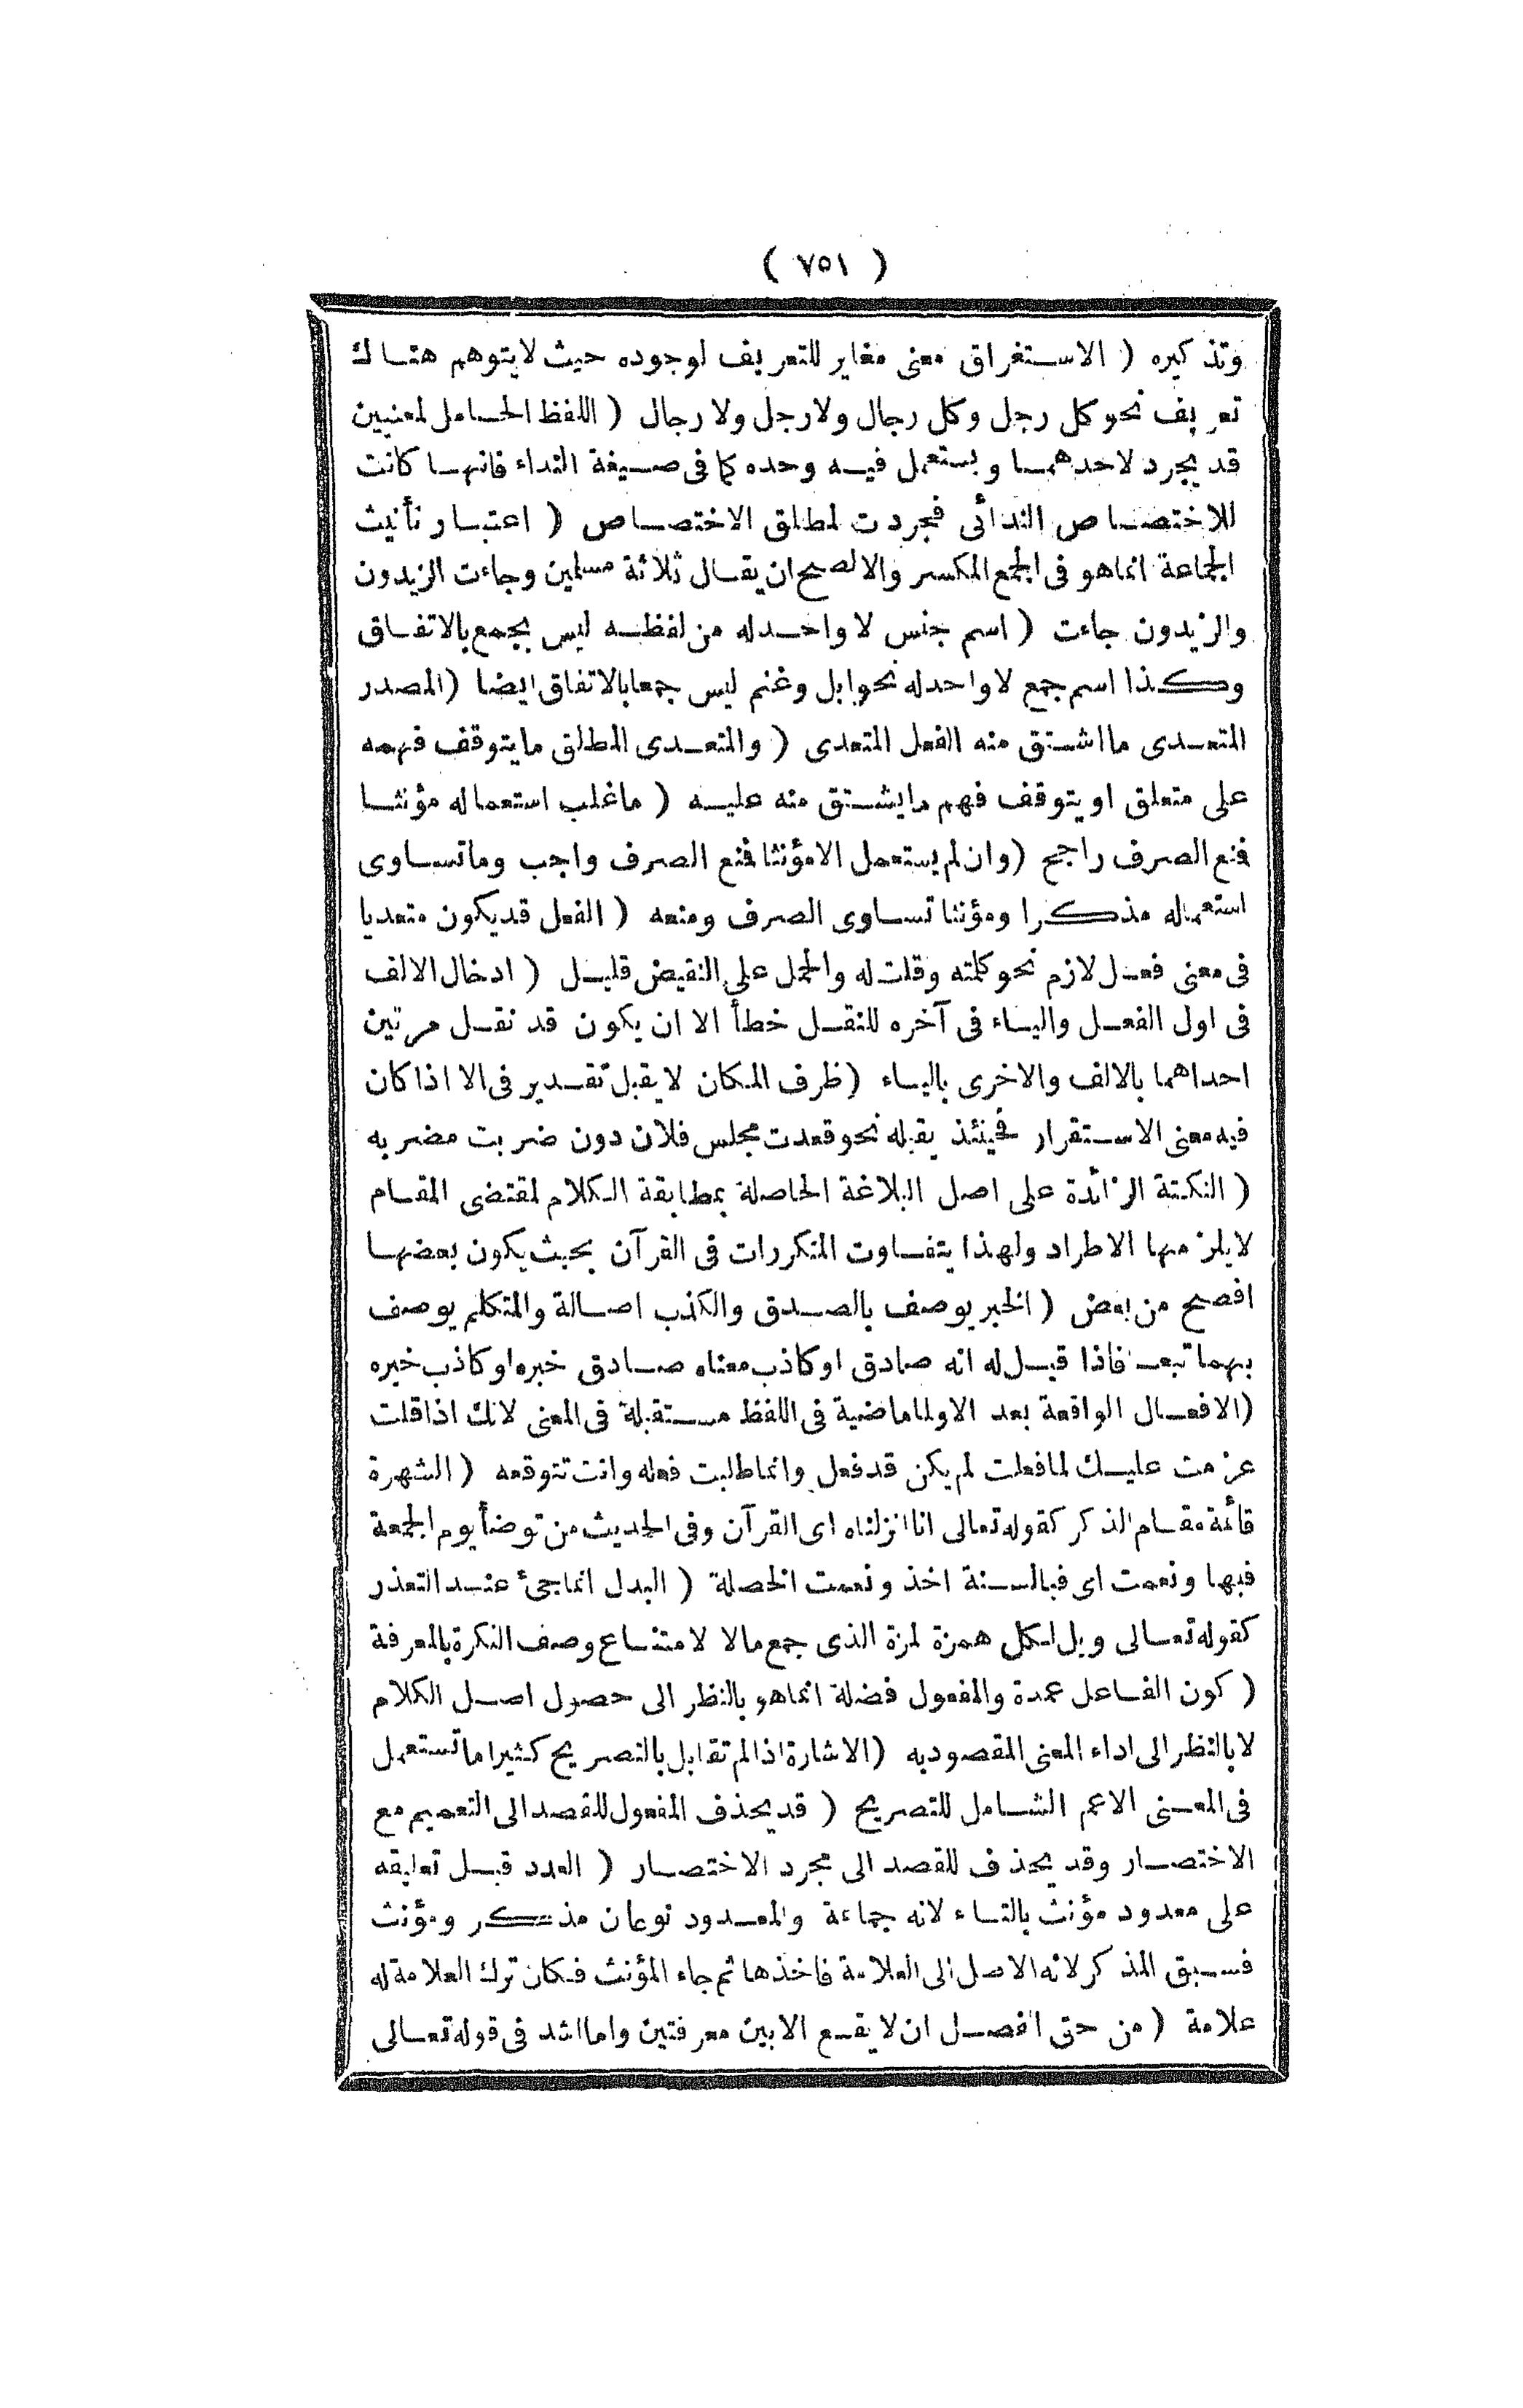 ( ٧٥١ )
وتذكيره ( الاستغراق معنى مغاير للتعريف لوجوده حيث لايتوهم هناك
تعريف نحو كل رجل وكل رجال ولارجل ولا رجال ( اللفظ الحامل لمعنيين
قد يجرد لاحدهما ويستعمل فيه وحده كما فى صيغة النداء فانها كانت
للاختصاص الندائى فجردت لمطلق الاختصاص ( اعتبار تأنيث
الجماعة انماهو فى الجمع المكسر والا لصح ان يقال ثلاثة مسلمين وجاءت الزيدون
والزيدون جاءت ( اسم جنس لا واحد له من لفظه ليس بجمع بالاتفاق
وكذا اسم جمع لاواحد له نحو ابل وغنم ليس جمعا بالاتفاق ايضا ( المصدر
المتعدى ما اشتق منه الفعل المتعدى ( والمتعدى المطلق مايتوقف فهمه
على متعلق او يتوقف فهم مايشتق منه عليه ( ماغلب استعماله مؤنثا
فنع الصرف راجح ( وان لم يستعمل الامؤنثا فنع الصرف واجب وماتساوى
استعماله مذكرا ومؤنثا تساوى الصرف ومنعه ( الفعل قديكون متعديا
فى معنى فعل لازم نحو كلمته وقلت له والحمل على النقيض قليل ( ادخال الالف
فى اول الفعل والياء فى آخره للنقل خطأ الا ان يكون قد نقل مرتين
احداهما بالالف والاخرى بالياء ( ظرف المكان لايقبل تقدير فى الا اذا كان
فيه معنى الاستقرار فحينئذ يقبله نحو قعدت مجلس فلان دون ضربت مضربه
( النكتة الزائدة على اصل البلاغة الحاصلة بمطابقة الكلام لمقتضى المقام
لايلزمها الاطراد ولهذا يتفاوت المتكررات فى القرآن بحيث يكون بعضها
افصح من بعض ( الخبر يوصف بالصدق والكذب اصالة والمتكلم يوصف
بهما تبعا فاذا قيل له انه صادق او كاذب معناه صادق خبره او كاذب خبره
( الافعال الواقعة بعد الاولما ماضية فى اللفظ مستقبلة فى المعنى لانك اذاقلت
عزمت عليك لمافعلت لم يكن قدفعل وانماطلبت فعله وانت تتوقعه ( الشهرة
قائمة مقام الذكر كقوله تعالى انا انزلناه اى القرآن وفى الحديث من توضأ يوم الجمعة
فبها ونعمت اى فبالسنة اخذ ونعمت الخصلة ( البدل انما جئ عند التعذر
كقوله تعالى ويل لكل همزة لمزة الذى جمع مالا لامتناع وصف النكرة بالمعرفة
( كون الفاعل عمدة والمفعول فضلة انماهو بالنظر الى حصول اصل الكلام
لا بالنظر الى اداء المعنى المقصودبه ( الاشارة اذا لم تقابل بالتصريح كثيرا ماتستعمل
فى المعنى الاعم الشامل للتصريح ( قد يحذف المفعول للقصد الى التعميم مع
الاختصار وقد يحذف للقصد الى مجرد الاختصار ( العدد قبل تعليقه
على معدود مؤنث بالتاء لانه جماعة والمعدود نوعان مذكر ومؤنث
فسبق المذكر لانه الاصل الى العلامة فاخذها ثم جاء المؤنث فكان ترك العلامة له
علامة ( من حتى الفصل ان لا يقع الابين معرفتين واما اشد فى قوله تعالى